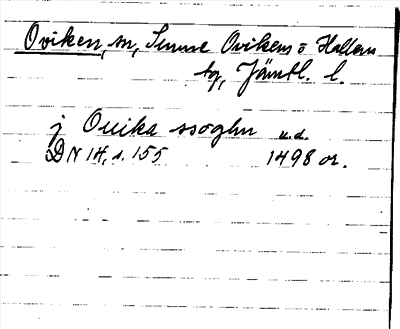 Oviken, sn, Sunne Ovikens o Hallens
tg, Jämtl. l.
j Ouika ssoghn u.d.
DN 14, s. 155 1498 or.